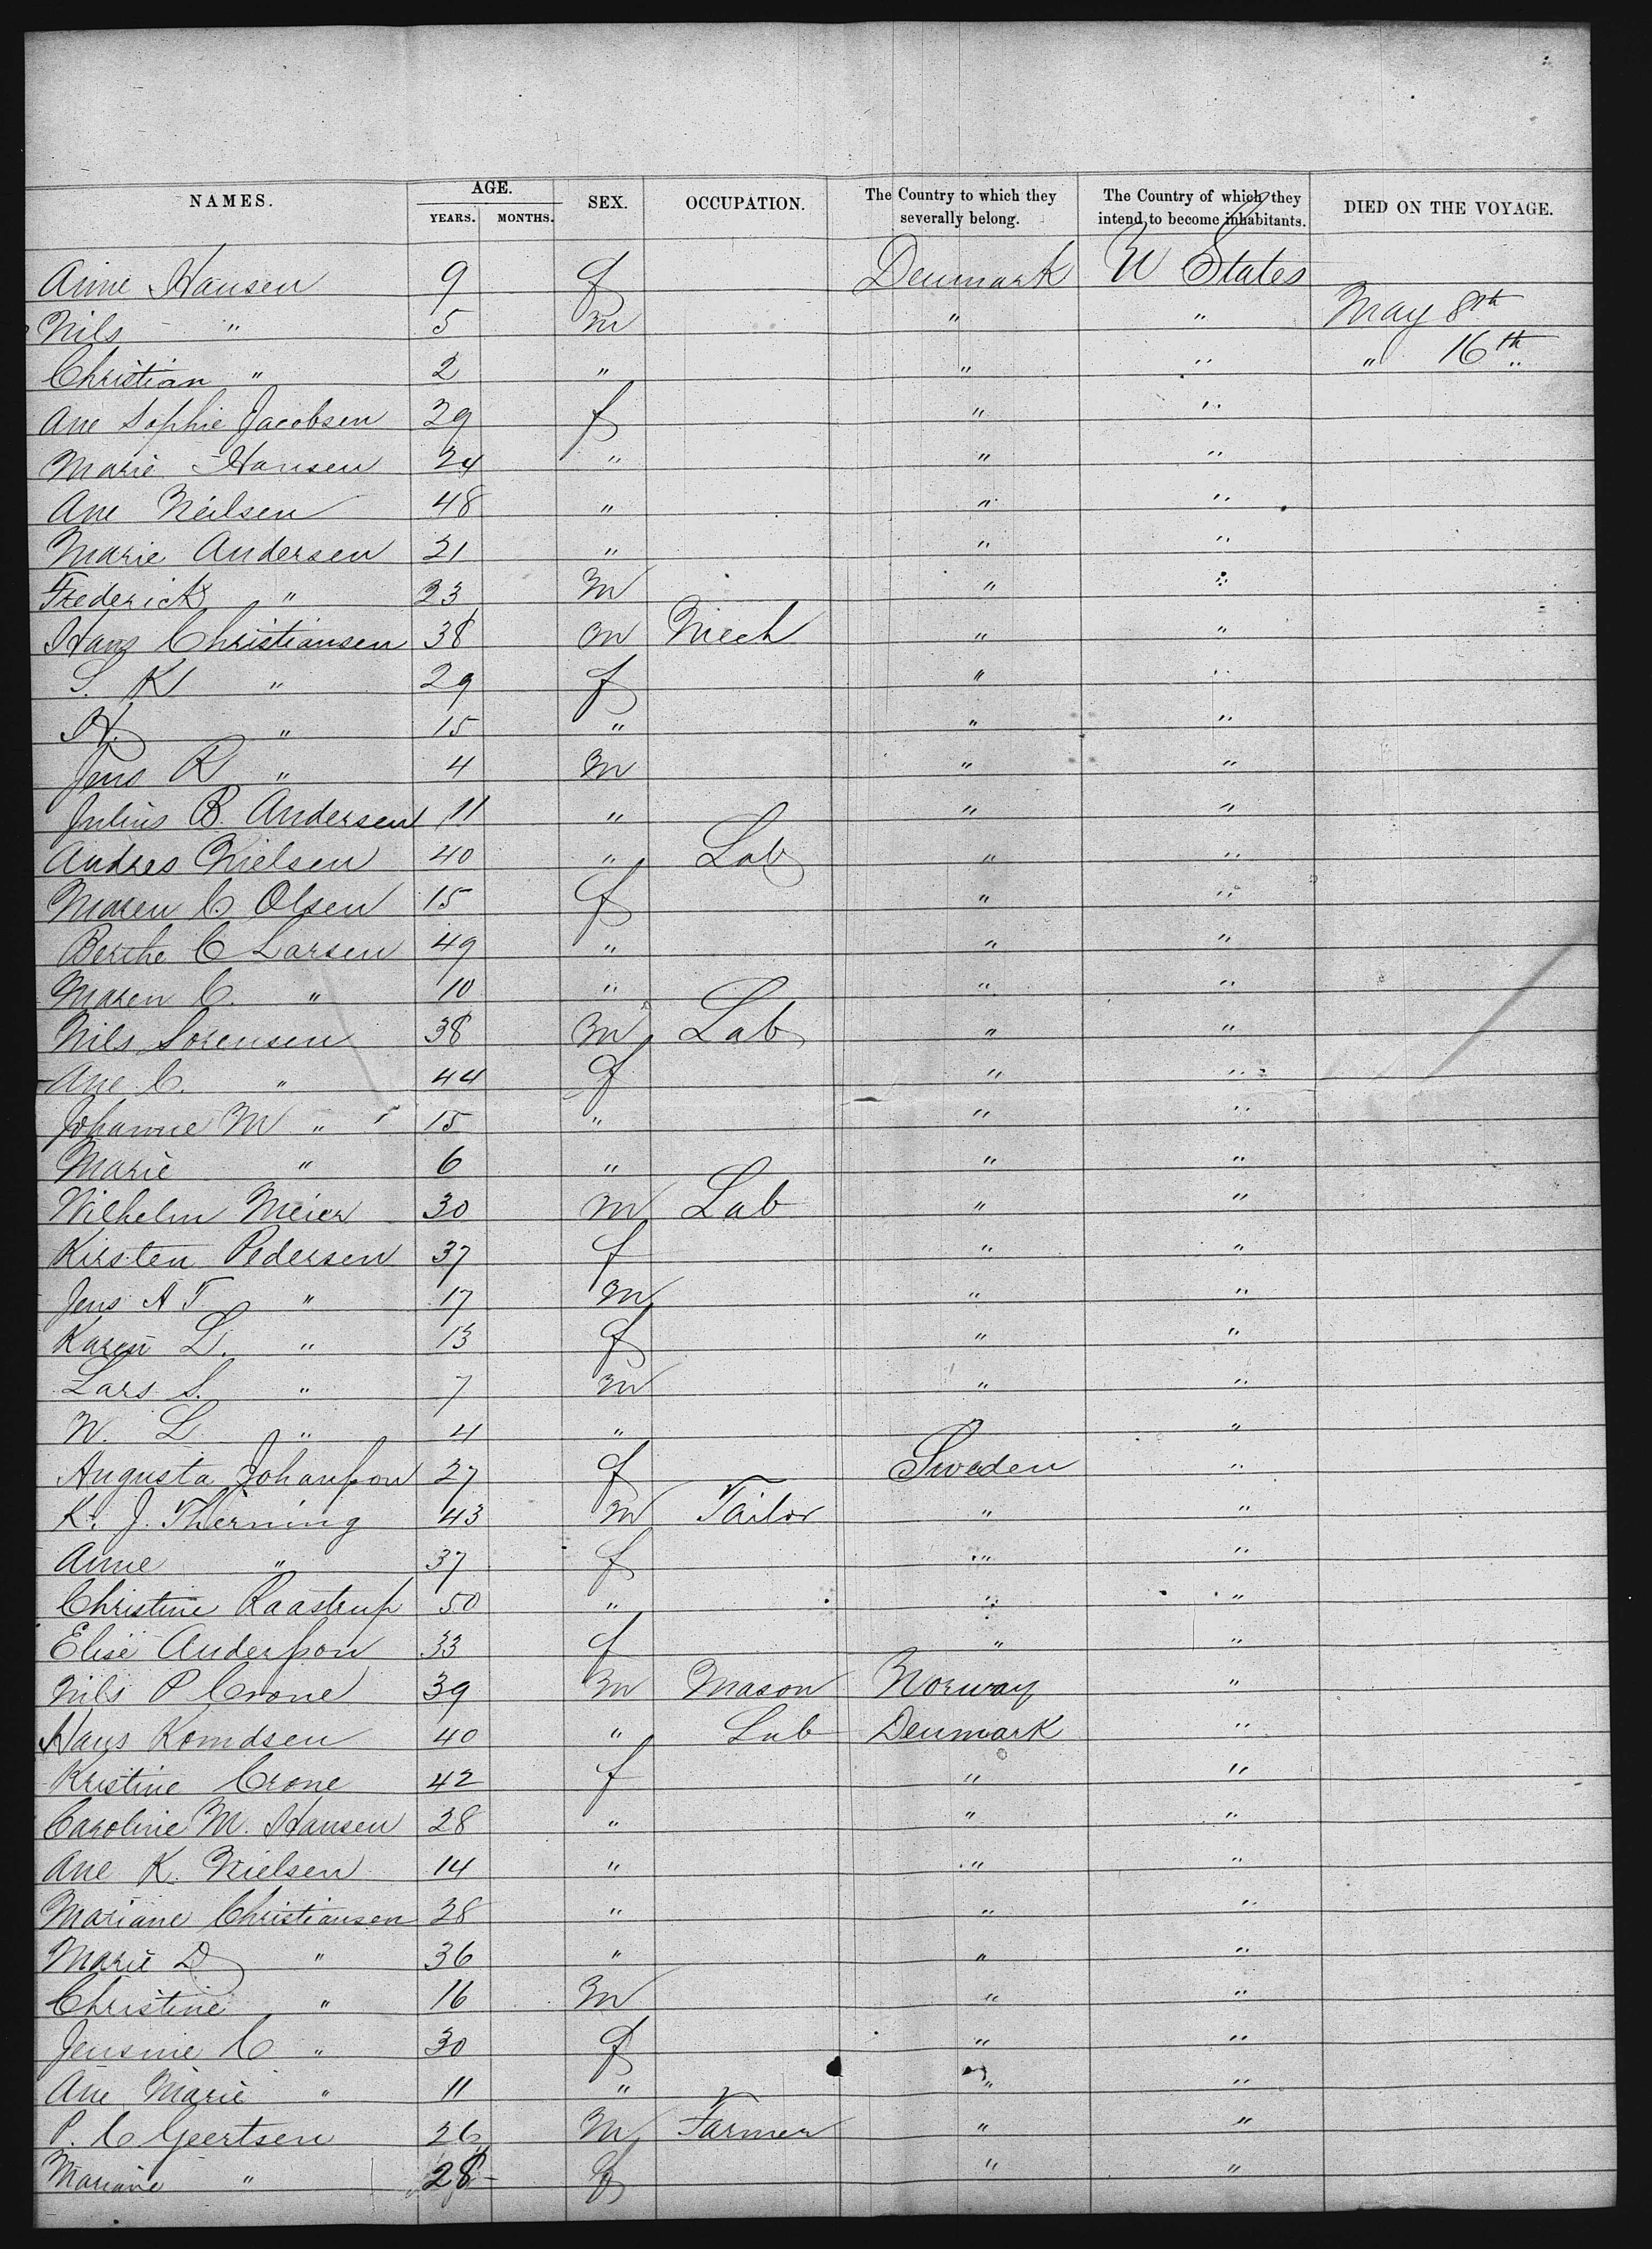 NAMES. AGE. SEX. OCCUPATION. The Country to which they severally belong. The Country of which they intend to become inhabitants. DIED ON THE VOYAGE.
YEARS. MONTHS.
Anne Hansen 9 f Denmark U States
Nils " 5 m " " May 8th
Christian " 2 " " " " 16th
Ane Sophie Jacobsen 29 f " "
Marie Hansen 24 " " "
Ane Neilsen 48 " " "
Marie Andersen 21 " " "
Frederick " 23 m " "
Hans Christiansen 38 m Mech " "
S. K " 29 f " "
H. " 15 " " "
Jens R " 4 m " "
Julius B. Andersen 11 " " "
Andres Nielsen 40 " Lab " "
Maren C. Olsen 15 f " "
Berthe C Larsen 49 " " "
Maren C. " 10 " " "
Nils Sorensen 38 m Lab " "
Ane C. " 44 f " "
Johanne M " 15 " " "
Marie " 6 " " "
Wilhelm Meier 30 m Lab " "
Kirsten Pedersen 37 f " "
Jens A T " 17 m " "
Karen L. " 13 f " "
Lars S. " 7 m " "
N. L " 4 " "
Augusta Johansson 27 f Sweden "
K. J. Therning 43 m Tailor " "
Anne " 37 f " "
Christine Raastrup 50 " " "
Elise Andersson 33 f " "
Nils P Crone 39 m Mason Norway "
Hans Romdsen 40 " Lab Denmark "
Kristine Crone 42 f " "
Caroline M. Hansen 28 " " "
Ane K. Nielsen 14 " " "
Mariane Christiansen 28 " " "
Marie D " 36 " " "
Christine " 16 m " "
Jensine C " 30 f " "
Ane Marie " 11 " " "
P. C Geertsen 26 m Farmer " "
Mariane " 28 f " "